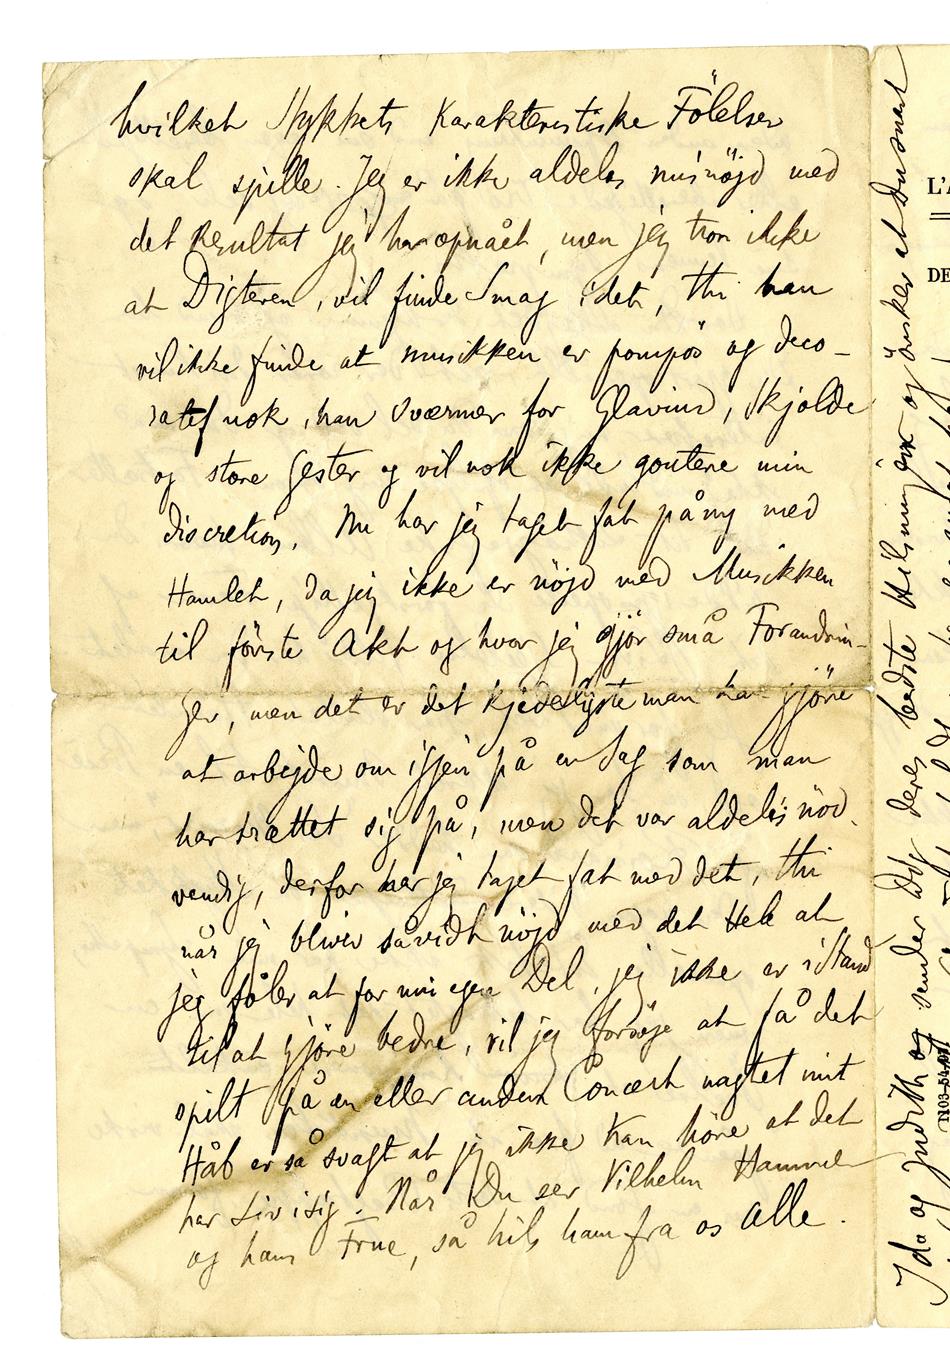 hvilket Stykkets Karakteristiske Följelser
skal spille. Jeg er ikke aldeles misnöjd med
det Resultat jeg har opnået, men jeg tror ikke
at Digteren, vil finde Smag i det, thi han
vil ikke finde at musikken er pompös og deco-
ratif nok, han Sværmer for Glavind, Skjolde
og store Gester og vil nok ikke goutere min
discretion. Nu har jeg taget fat påny med
Hamlet, da jeg ikke er nöjd med Musikken
til förste Akt og hvor jeg gjör små Forandrin-
ger, men det er det kjedeligste man kan gjöre
at arbejde om igjen på en Sag som man
har trættet sig på, men det var aldeles nöd-
vendig, derfor har jeg taget fat med det, thi
når jeg bliver såvidt nöjd med det Hele at
jeg föler at for min egen Del, jeg ikke er i Stand
til at gjöre bedre, vil jeg forsöge at få det
spilt på en eller anden Concert uagtet mit
Håb er så svagt at jeg ikke kan höre at det
har Liv i sig. Når Du ser Vilhelm Hammer
og hans Frue, så hils ham fra os alle.
Ida og Judith og sender Dig deres bedste Hilsning og önsker at Du snart
L'A
DE